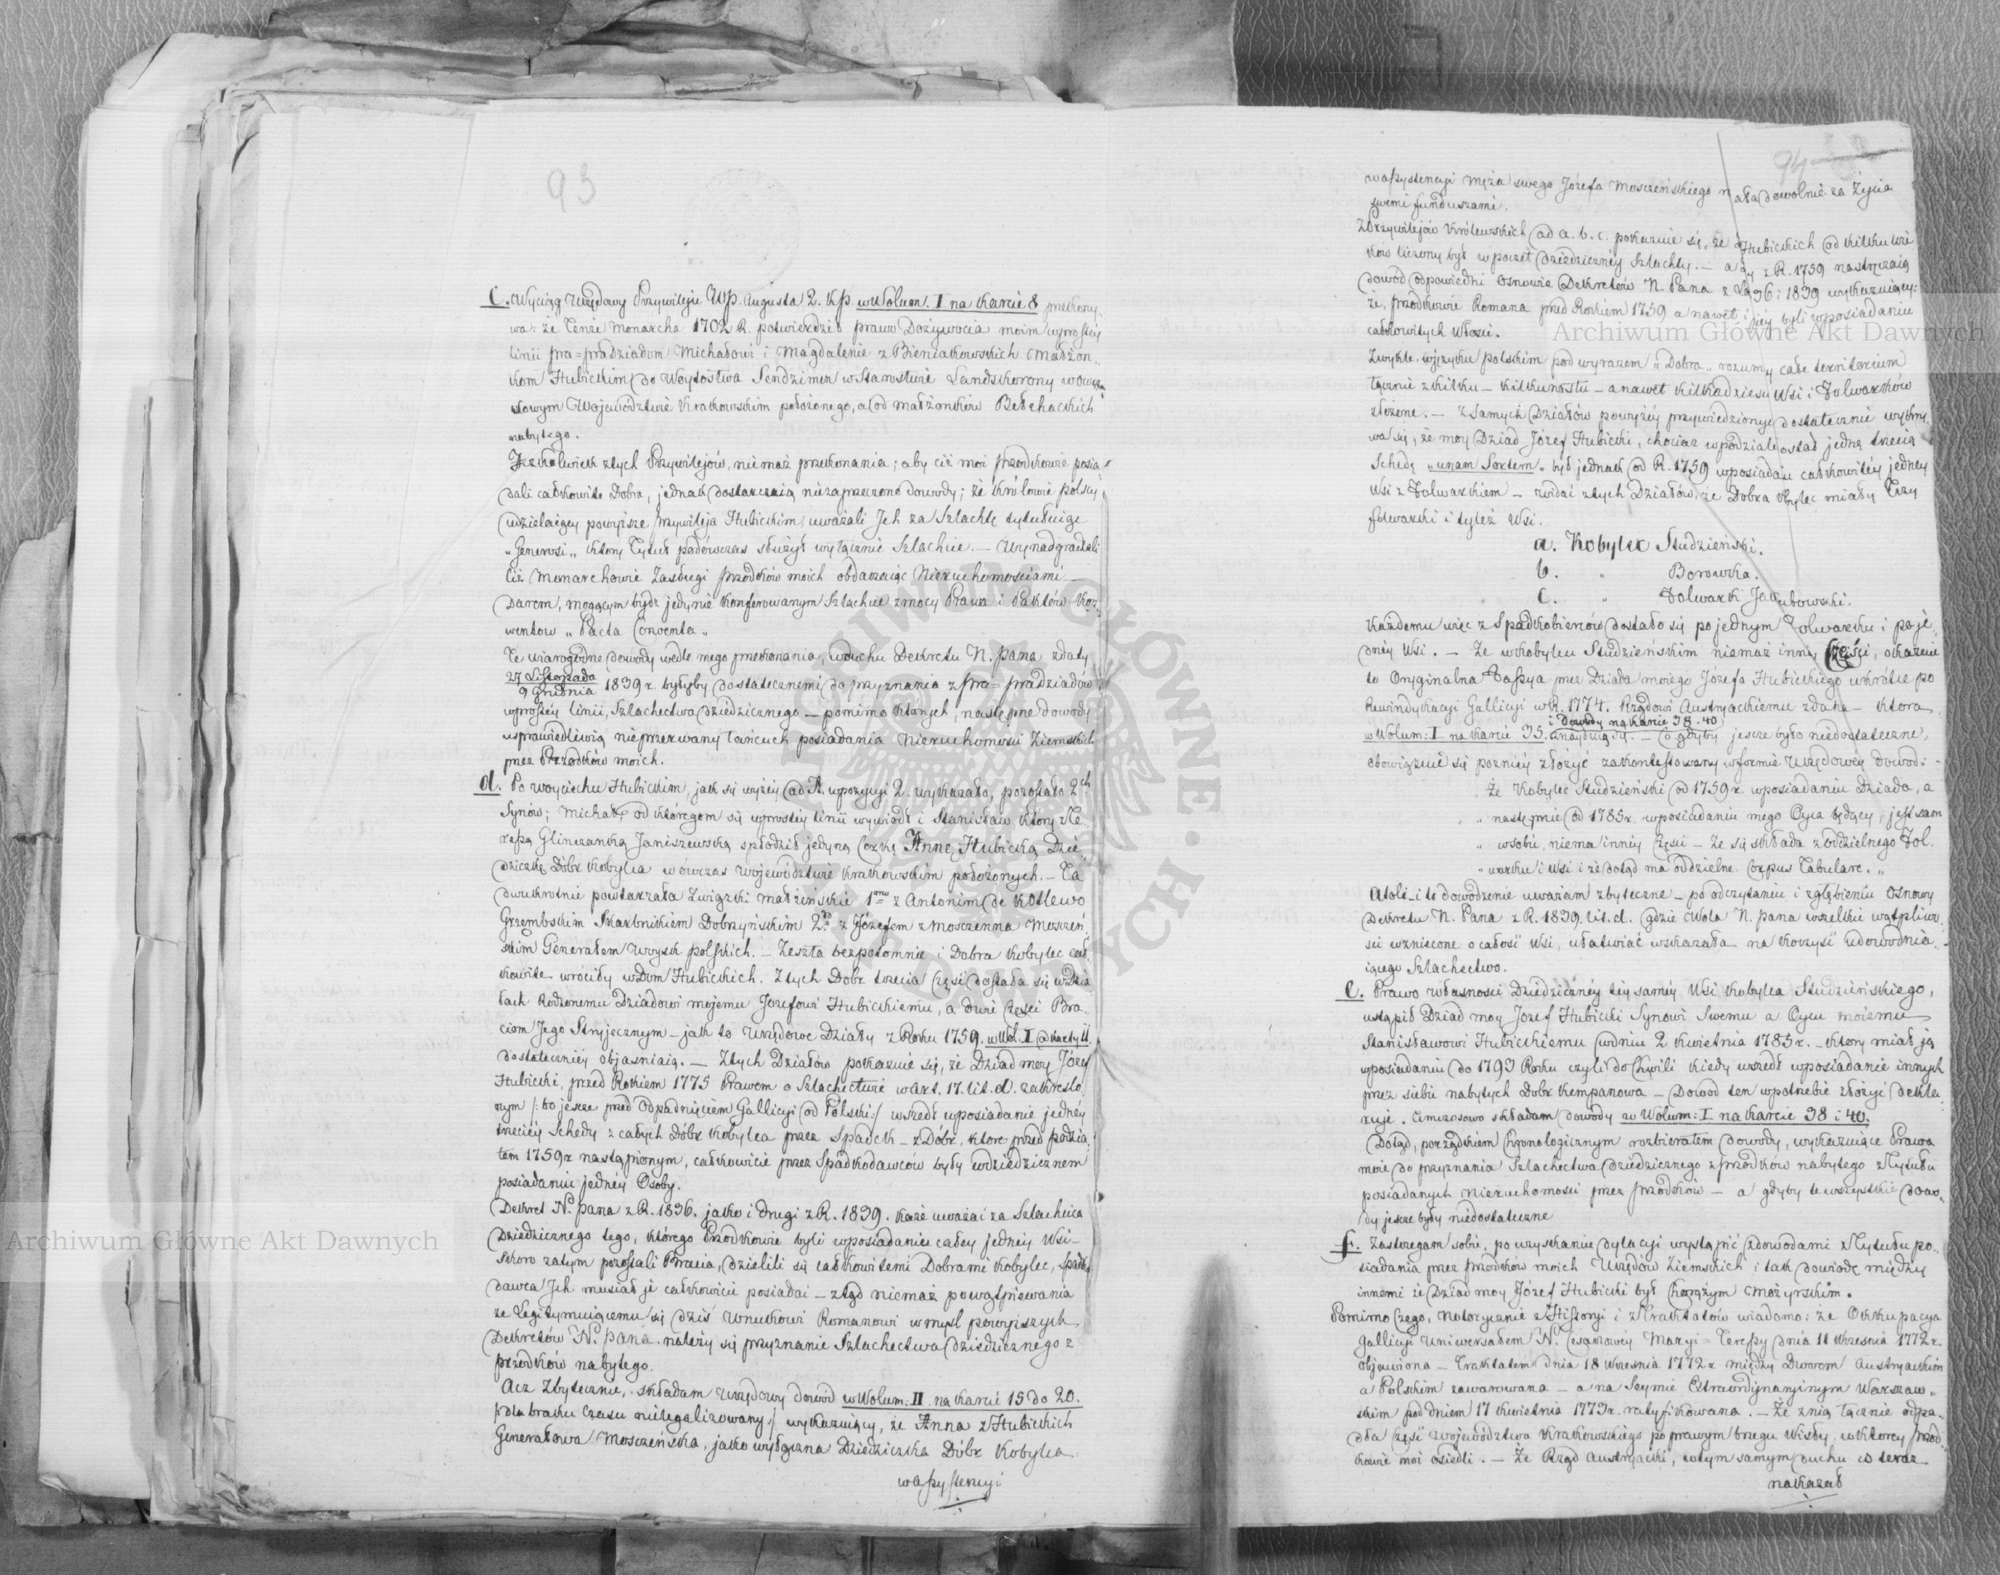 93
c. Wyciąg Urzędowy Przywileju Augusta 2. w Wolum. I na karcie 8 przekony-
wa: że Tenże Monarcha 1702 R. potwierdził prawo Dożywocia moim w prostéy
linii pra=pradziadom Michałowi i Magdalenie z Bieniatkowskich Małżon-
kom Hubickim do Woytostwa Sendzimir w Starostwie Landskorony wówcza
sowym Województwie Krakowskim położonego, a od małżonków Bełchackich
nabytego.
Jczkolwiek z tych Przywilejów, niemasz przekonania; aby ciż moi przodkowie posia-
dali całkowite Dobra, jednak dostarczaią niezaprzeczone dowody; że Królowie polscy
udzielaiący powyższe przywileja Hubickim, uważali Jch za Szlachtę tytułuiąc
„Generosi„ który Tytuł podówczas służył wyłącznie Szlachcie. — Wynadgradzali
ciż Monarchowie Zasługi przodków moich obdarzaiąc Nieruchomościami —
Darem, mogącym bydź jedynie konferowanym Szlachcie z mocy Prawa i Paktów Kon-
wentów „Pacta Conventa„
Te wiarogodne dowody wedle mego przekonania, w duchu Dekretu N. Pana z daty
27 Listopada
9 Grudnia 1839 r. byłyby dostatecznemi do przyznania z pra=pradziadów
w prostéy linii, Szlachectwa dziedzicznego — pomimo których, następne dowody
usprawiedliwią nieprzerwany łańcuch posiadania Nieruchomości Ziemskich
przez Przodków moich.
d. Po Woyciechu Hubickim, jak się wyżéy ad A. w pozycyi 2. wykazało, pozostało 2ch
Synów; Michał, od którego m się w prostéy linii wywiódł i Stanisław, który z Te-
ressą Glinczanką Janiszewską spłodził jedyną Córkę Annę Hubicką Dzie-
dziczkę Dóbr Kobylca w ówczas Województwie Krakowskim położonych. — Ta
dwukrotnie powtarzała związki małżeńskie 1mo z Antonim de Kotlewo
Grzembskim Skarbnikiem Dobrzyńskim 2do z Józefem z Moszczenna Moszczeń-
skim Generałem Woysk polskich. — Zeszła bezpotomnie i Dobra Kobylec cał-
kowite wróciły w Dom Hubickich. Z tych Dóbr trzecia Częś dostała się w Dzia-
łach Rodzonemu Dziadowi mojemu Jozefowi Hubickiemu, a dwie Części Bra-
ciom Jego Stryjecznym — jak to Urzędowe Działy z Roku 1759. w Wol. I
dostateczniéy objasniaią. — Z tych Działów pokazuie się, że Dziad moy Józef
Hubicki, przed Rokiem 1775 Prawem o Szlachectwie w art. 17. lit. d. zakreslo-
nym /: bo jeszcze przed Odpadnięciem Gallicyi od Polski :/ wszedł w posiadanie jednéy
trzeciéy Schedy z całych Dóbr Kobylca przez Spadek — z Dóbr, które przed podzia-
łem 1759 r. nastąpionym, całkowicie przez Spadkodawców były w dziedzicznem
posiadaniu jednéy Osoby.
Dekret N. Pana z R. 1836. jako i drugi z R. 1839. każe uważać za Szlachcica
Dziedzicznego tego, którego Przodkowie byli w posiadaniu całéy jednéy Wsi —
Skoro zatym pozostali Bracia, dzielili się całkowitemi Dobrami Kobylec, Spadko-
dawca Jch musiał je całkowicie posiadać — ztąd niemasz powątpiewania
że Legitymuiącemu się dziś Wnukowi Romanowi w myśl powyższych
Dekretów N. Pana. należy się przyznanie Szlachectwa dziedzicznego z
przodków nabytego.
Acz Zbytecznie, składam Urzędowy dowód w Wolum: II na karcie 15 do 20.
/: dla braku czasu nielegalizowany :/ wykazuiący, że Anna z Hubickich
Generałowa Moszczeńska, jako wyłączna Dziedziczka Dóbr Kobylca
w assystencyi
94
w assystencyi męża swego Józefa Moszczeńskiego rządziła dowolnie za życia
swemi funduszami.
Z Przywilejów Królewskich ad a. b. c. pokazuie się, że Hubickich od kilku wie-
ków liczony był w poczet dziedzicznéy Szlachty. — a z R. 1759 nastręczaią
dowód odpowiedni Osnowie Dekretów N. Pana z 1836 i 1839 wykazuiący:
że, przodkowie Romana przed Rokiem 1759 a nawet i późniéy byli w posiadaniu
całkowitych Włości.
Zwykle w języku polskim pod wyrazem „Dobra„ rozumie całe territorium
łącznie z kilku — kilkunastu — a nawet kilkudziesiąt Wsi i Folwarków
złożone. — Z samych Działów powyżéy przywiedzionych dostatecznie wykry-
wa się, że moy Dziad Józef Hubicki, chociaż w podziale dostał jedną trzecią
Schedę „unam Sortem„ był jednak od R. 1759 w posiadaniu całkowitéy jednéy
Wsi z Folwarkiem — widać z tych Działów, że Dobra Kobylec miały Trzy
folwarki i tyleż Wsi.
a. Kobylec Studzieński.
b. „ Borowka.
c. „ Folwark Jakubowski.
Każdemu więc z Spadkobierców dostało się po jednym Folwarku i po je-
dnéy Wsi. — Że w Kobylcu Studzieńskim niemasz innéy Części, okazuie
to Oryginalna Fassya przez Dziada mojego Józefa Hubickiego wkrótce po
Rewindykacyi Gallicyi w R. 1774. Rządowi Austryackiemu zdana — która
i dowody na karcie 38. 40,
w Wolum: I na karcie 35. znayduią się. — Co gdyby jeszcze było niedostateczne,
obowiązuie się pozniéy złożyć zakontestowany w formie Urzędowéy Dowod: —
„ Że Kobylec Studzieński od 1759 r. w posiadaniu Dziada, a
„ następnie od 1785 r. w posiadaniu mego Oyca będący, jest sam
„ w sobie, niema innéy Części — Że się składa z oddzielnego Fol-
„ warku i Wsi i że dotąd ma oddzielne Corpus Tabulare. „
Atoli i to dowodzenie uważam zbyteczne — po odczytaniu i zgłębieniu Osnowy
Dekretu N. Pana z R. 1839. lit. d. gdzie Wola N. Pana wszelkie wątpliwo-
sci wzniecone o całość Wsi, ułatwiać wskazała na korzyść udowodnia-
iącego Szlachectwo.
e. Prawo własności Dziedzicznéy téy saméy Wsi Kobylca Studzieńskiego,
ustąpił Dziad moy Jozef Hubicki Synowi Swemu a Oycu moiemu
Stanisławowi Hubickiemu w dniu 2 Kwietnia 1785 r. — który miał ją
w posiadaniu do 1793 Roku czyli do Chwili kiedy wszedł w posiadanie innych
przez siebie nabytych Dóbr Krempanowa — Dowod ten w potrzebie złożyć dekla-
ruje. Tymczasowo składam dowody w Wolum: I na karcie 38 i 40.
Dotąd, porządkiem Chronologicznym rozbierałem dowody, wykazuiące Prawa
moie do przyznania Szlachectwa dziedzicznego z przodków nabytego z Tytułu
posiadanych Nieruchomości przez przodków — a gdyby te wszystkie dowo-
dy jeszcze były niedostateczne
f. Zastrzegam sobie, po uzyskaniu dylacyi wystąpić z dowodami z Tytułu po-
siadania przez przodków moich Urzędów Ziemskich i tak dowiodę między
innémi że Dziad moy Józef Hubicki był Chorążym Mozyrskim.
Pomimo Czego, Notorycznie z Historyi i z Traktatów wiadomo: że Okkupacya
Gallicyi Uniwersałem N. Cesarzowéy Maryi=Teressy dnia 11 Września 1772 r.
objawiona — Traktatem dnia 18 Września 1772 r. między Dworem Austryackim
a Polskim zawarowana — a na Seymie Extraordynaryinym Warszaw-
skim pod dniem 17 Kwietnia 1773 r. ratyfikowana. — Że z nią łącznie odpa-
dła Częś Województwa Krakowskiego po prawym brzegu Wisły, w którey przod-
kowie moi osiedli. — Że Rząd Austryacki, w tym samym duchu co teraz
nakazał
Archiwum Główne Akt Dawnych
Archiwum Główne Akt Dawnych
ARCHIWUM GŁÓWNE AKT DAWNYCH